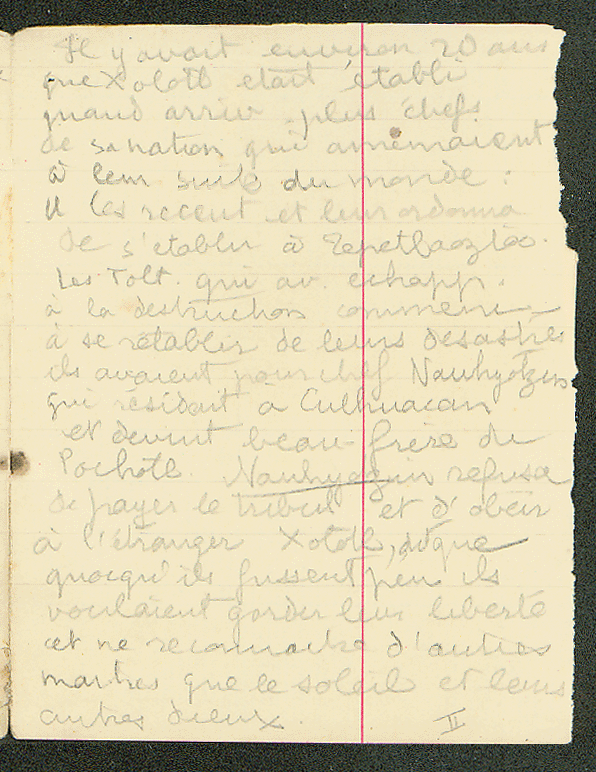 Il y avait environ 20 ans
que Xolotl etait établi
quand arriv. plus chefs
de sa nation qui amenaient
à leur suite du monde :
Il les recent et leur ordonna
de s'etablir à Tepetlaoztoc.
Les Tolt. qui av. echapp.
à la destruction commenc.
à se rétablir de leurs desastres
ils avaient pour chef Nauhyotzin
qui residait à Culhuacan
et devint beau-frère de
Pochotl Nauhyotzin refusa
de payer le tribut et d'obeir
à l'étranger Xolotl, dit que
quoiqu'ils fussent peu ils
voulaient garder leur liberté
et ne reconnaitre d'autres
maitres que le soleil et leurs
autres dieux.
II